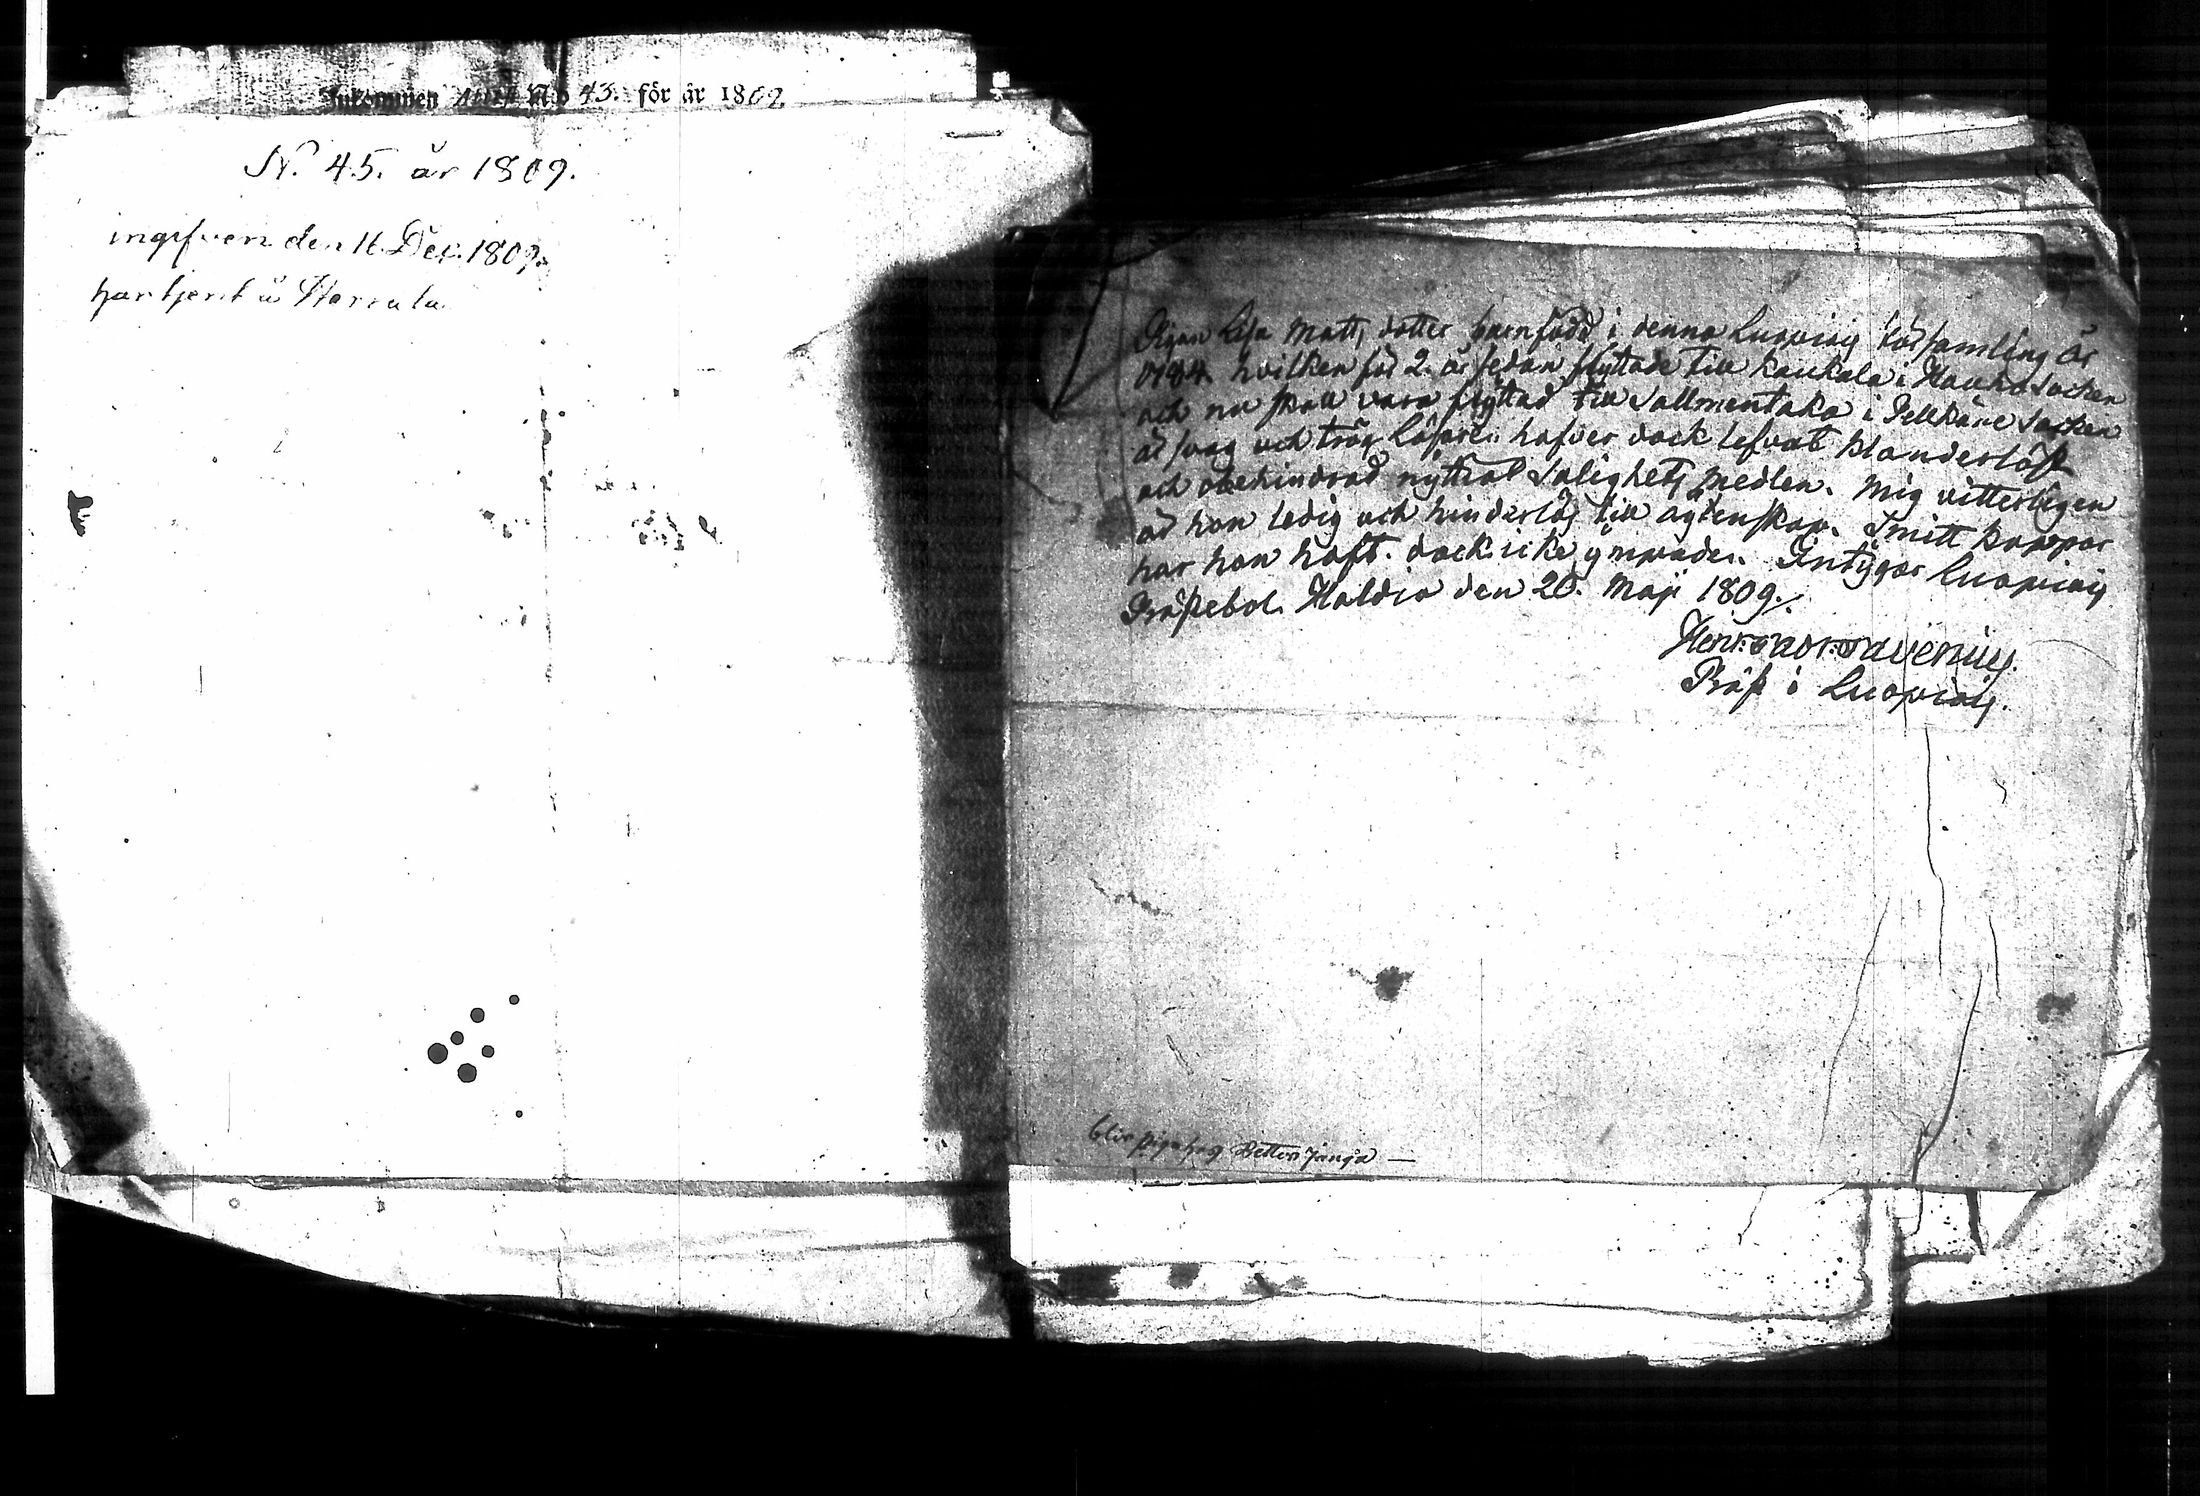 Inkommen Attest No 43. för år 1809.
N. 45. år 1809.
ingifven den 16 Dec. 1809.
har tjent i Harrala
Pigan Lisa Matts dotter, barnfödd i denna Luopiois Församling år
1784. hvilken för 2. år sedan flyttade till Kaukala i Hauho Socken
och nu skall vara flyttad till Salmentaka i Pelkäne Socken
är svag och trög läsare: hafver dock lefvat klanderlöst
och obehindrad nyttiat Salighets medlen. Mig vitterligen
är hon ledig och hinderlös till ägtenskap. Smitt koppor
har hon haft. dock icke ympade. Intygar Luopiois
Prästebol. Haldia den 20. Maji 1809.
Präst i Luopiois.
blir piga hos Petter